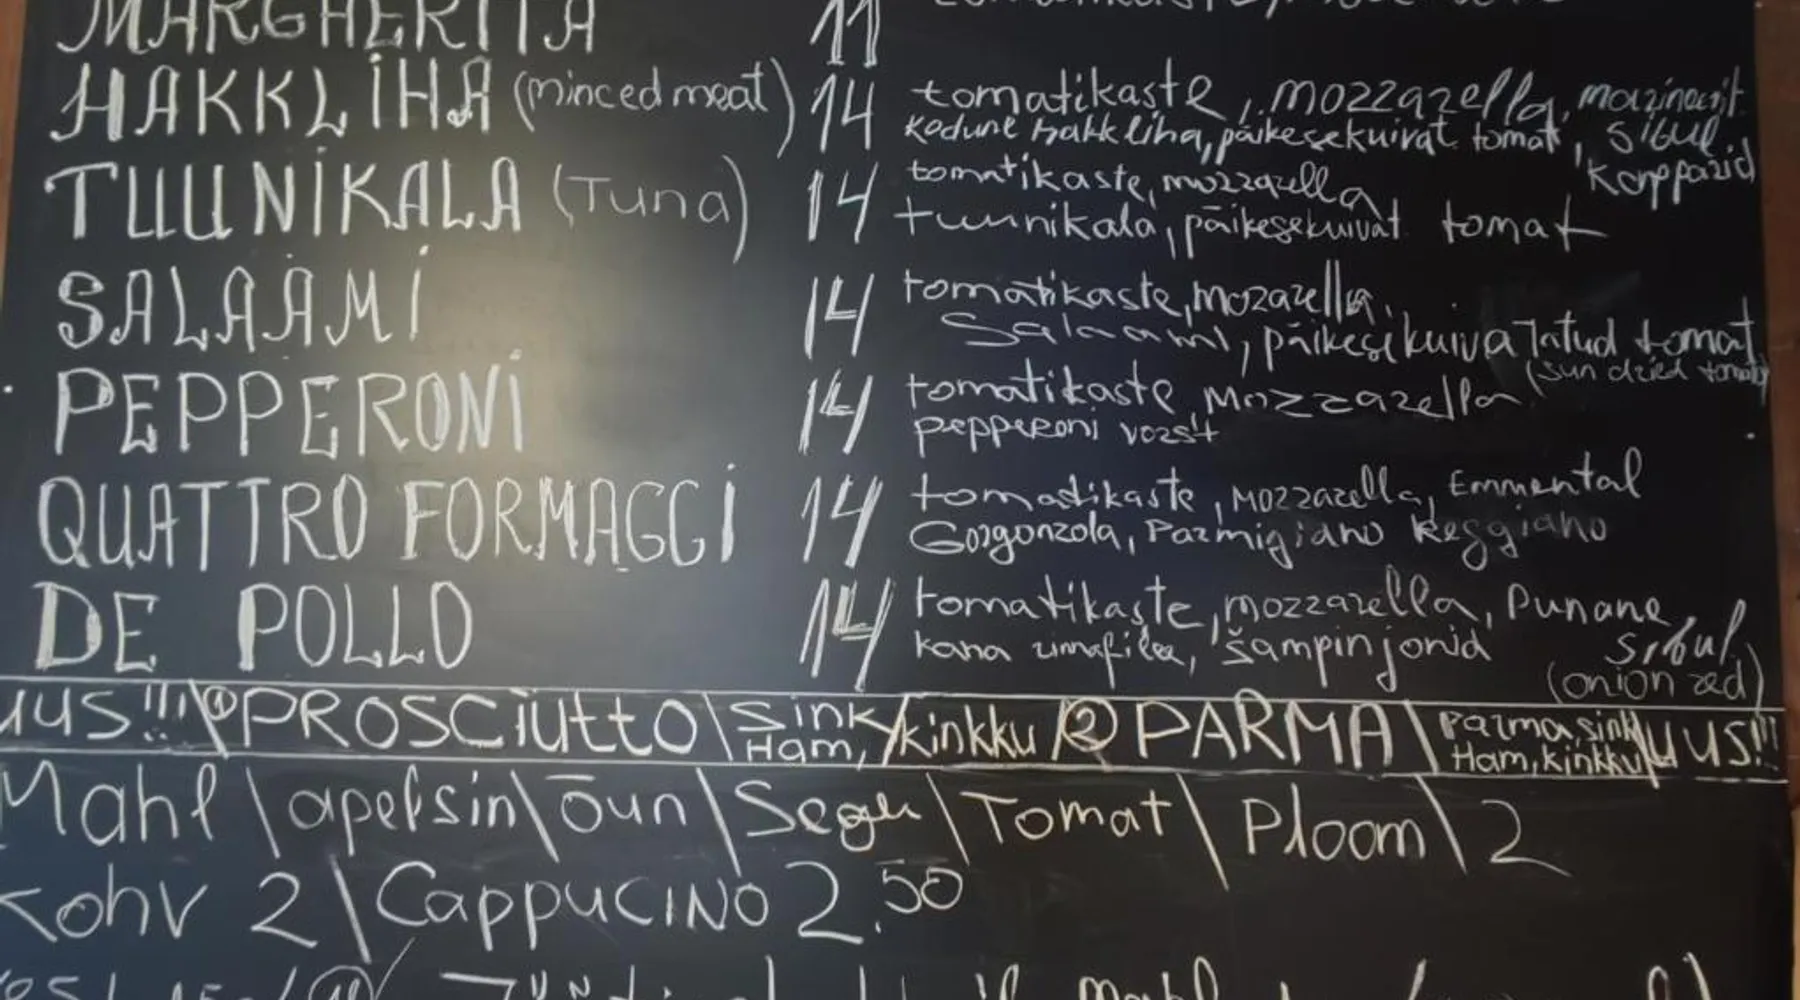 MARGHERITA 11
HAKKLIHA (minced meat) 14 tomatikaste, mozzarella,
kodune hakkliha, päikesekuivat tomat, sibul,
TUUNIKALA (Tuna) 14 tomatikaste, mozzarella,
tuunikala, päikesekuivat tomat
SALAAMI 14 tomatikaste, mozarella,
Salaami, päikesekuivatatud tomat
(sun dried tomato)
PEPPERONI 14 tomatikaste, mozzarella
pepperoni vorst
QUATTRO FORMAGGI 14 tomatikaste, mozzarella, Emmental
Gorgonzola, Parmigiano Reggiano
DE POLLO 14 tomatikaste, mozzarella, punane sibul
kana šampinjonid (onion red)
uus!!! 1 PROSCiutto \ Sink/kinkku / 2 PARMA \ parma, sink uus!!!
Ham, Ham, kinkku
Mahl \ apelsin \ õun \ Segu \ Tomat \ Ploom \ 2
Kohv 2 \ CappuciNO 2.50